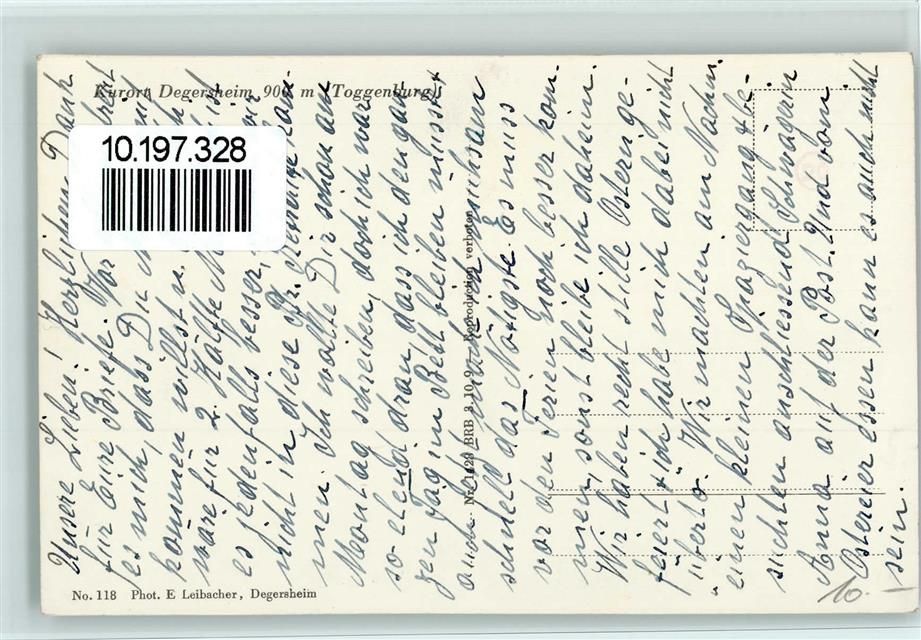 Kurort Degersheim 900 m (Toggenburg)
10.197.328
Unsere Lieben! Herzlichen Dank
für Eure Briefe. Vor
es mich, dass Du
kommen willst u.
wäre für 2. Hälfte
es jedenfalls besser,
nicht in diese
men. Ich wollte Dir schon am
Montag schreiben, doch ich war
so elend dran, dass ich den gan-
zen Tag im Bett bleiben musste
mühsam
schnell das Nötigste. Es muss
vor den Ferien noch besser kom-
men, sonst bleibe ich daheim.
Wir haben recht stille Ostern ge-
feiert & ich habe mich dabei nicht
überto. Wir machten am Nachm.
einen kleinen Spaziergang & be-
suchten anschliessend Schwägerin
Anna auf der Post. Und vom
Ostereier essen kann es auch nicht
sein.
Nr. 1123 BRB 3.10.9 — Reproduction verboten
No. 118 Phot. E Leibacher, Degersheim
10.-